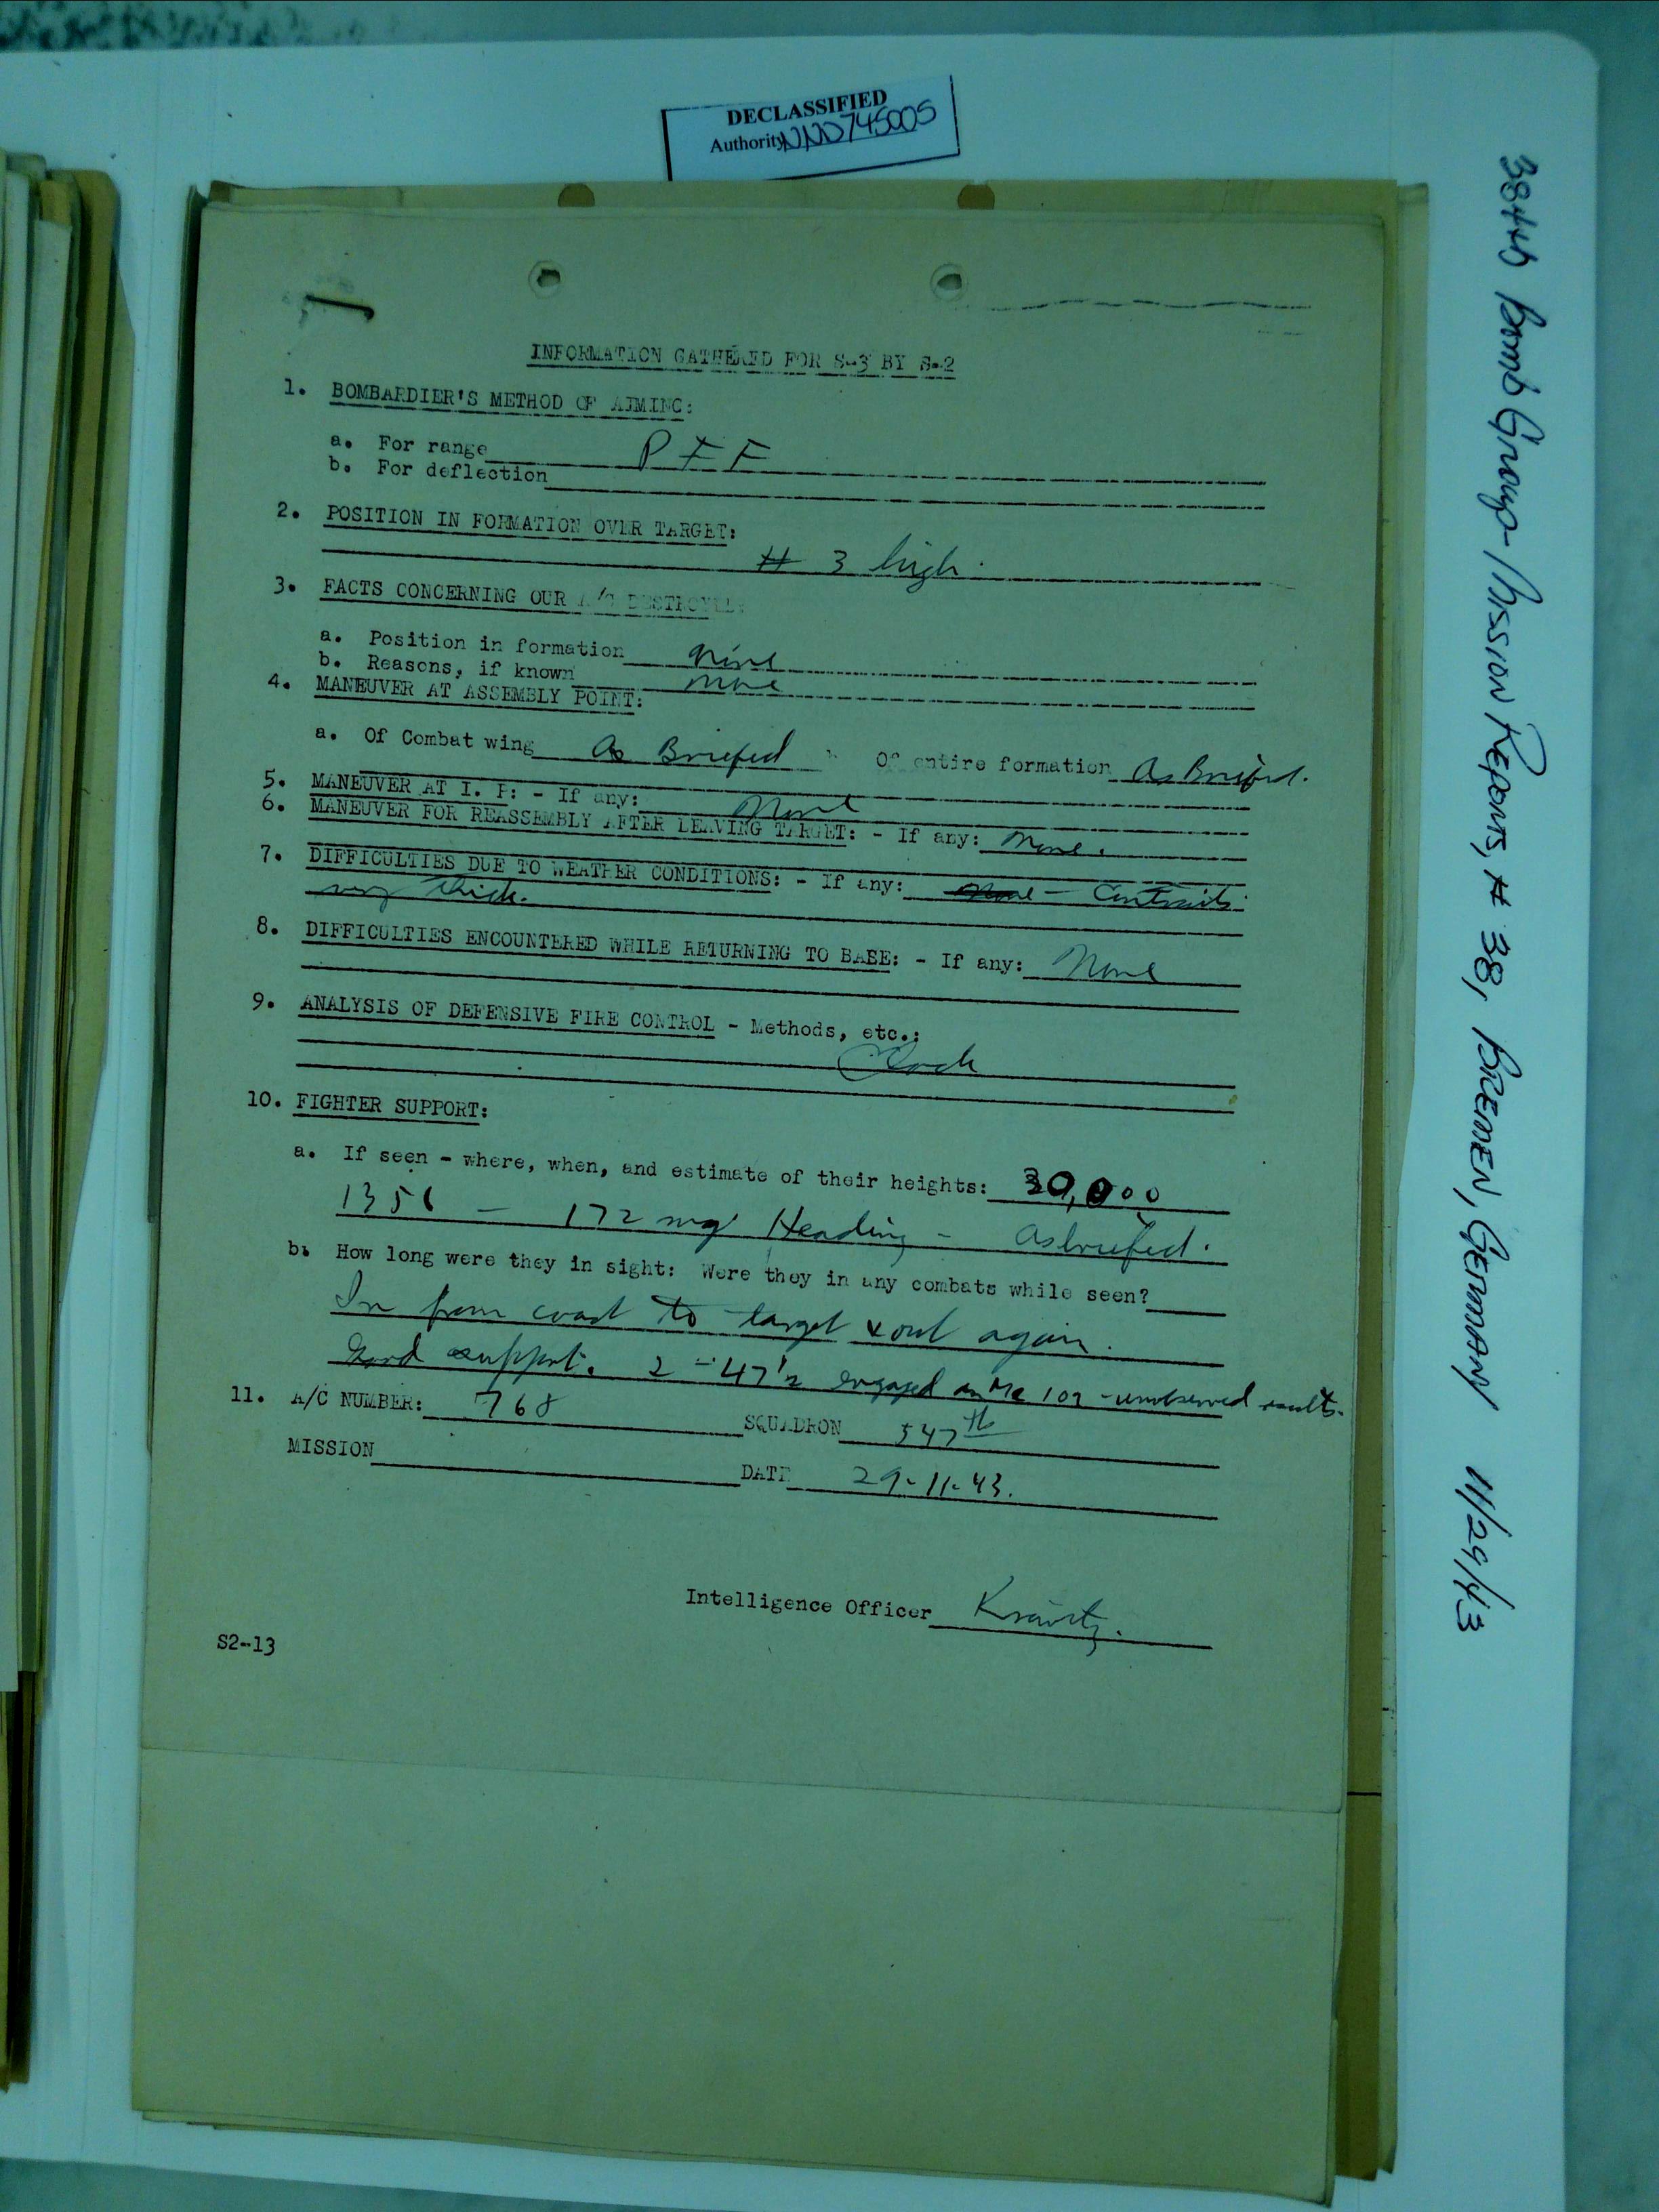 DECLASSIFIED
Authority NND745005
INFORMATION GATHERED FOR S-3 BY S-2
1. BOMBARDIER'S METHOD OF AIMING:
a. For range PFF
b. For deflection
2. POSITION IN FORMATION OVER TARGET:
# 3 high.
3. FACTS CONCERNING OUR A/C DESTROYED:
a. Position in formation None
b. Reasons, if known None
4. MANEUVER AT ASSEMBLY POINT:
a. Of Combat wing As Briefed Of entire formation As Briefed.
5. MANEUVER AT I. P: - If any: None
6. MANEUVER FOR REASSEMBLY AFTER LEAVING TARGET: - If any: None.
7. DIFFICULTIES DUE TO WEATHER CONDITIONS: - If any: None - Contrails
very thick.
8. DIFFICULTIES ENCOUNTERED WHILE RETURNING TO BASE: - If any: None
9. ANALYSIS OF DEFENSIVE FIRE CONTROL - Methods, etc.:
Clock
10. FIGHTER SUPPORT:
a. If seen - where, when, and estimate of their heights: 30,000
1356 - 172 mg Heading - As briefed.
b. How long were they in sight: Were they in any combats while seen?
In from coast to target & out again.
Good support. 2 - 47's engaged an Me 109 - unobserved results.
11. A/C NUMBER: 768 SQUADRON 547th
MISSION DATE 29-11-43.
Intelligence Officer
S2-13
384th Bomb Group - Mission Reports, # 38, BREMEN, GERMANY 11/29/43